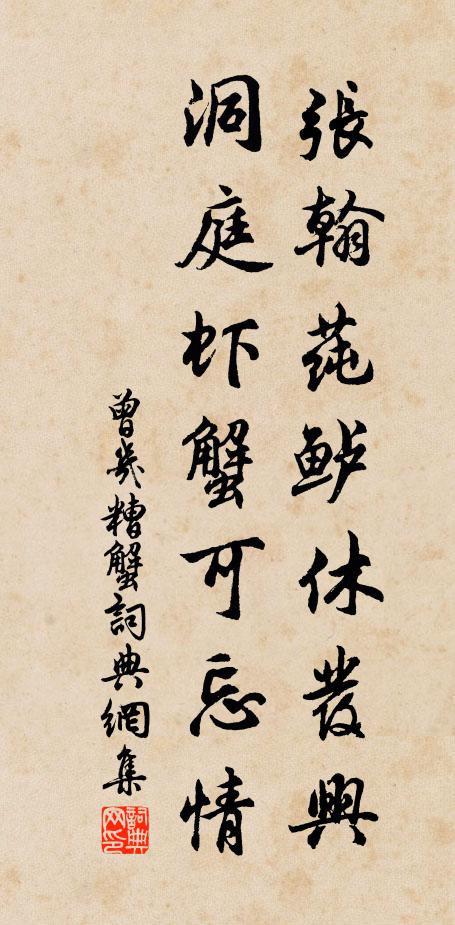 張翰莼鲈休發興
洞庭虾蟹可忘情
曾幾糟蟹詞典網集
詞典网印